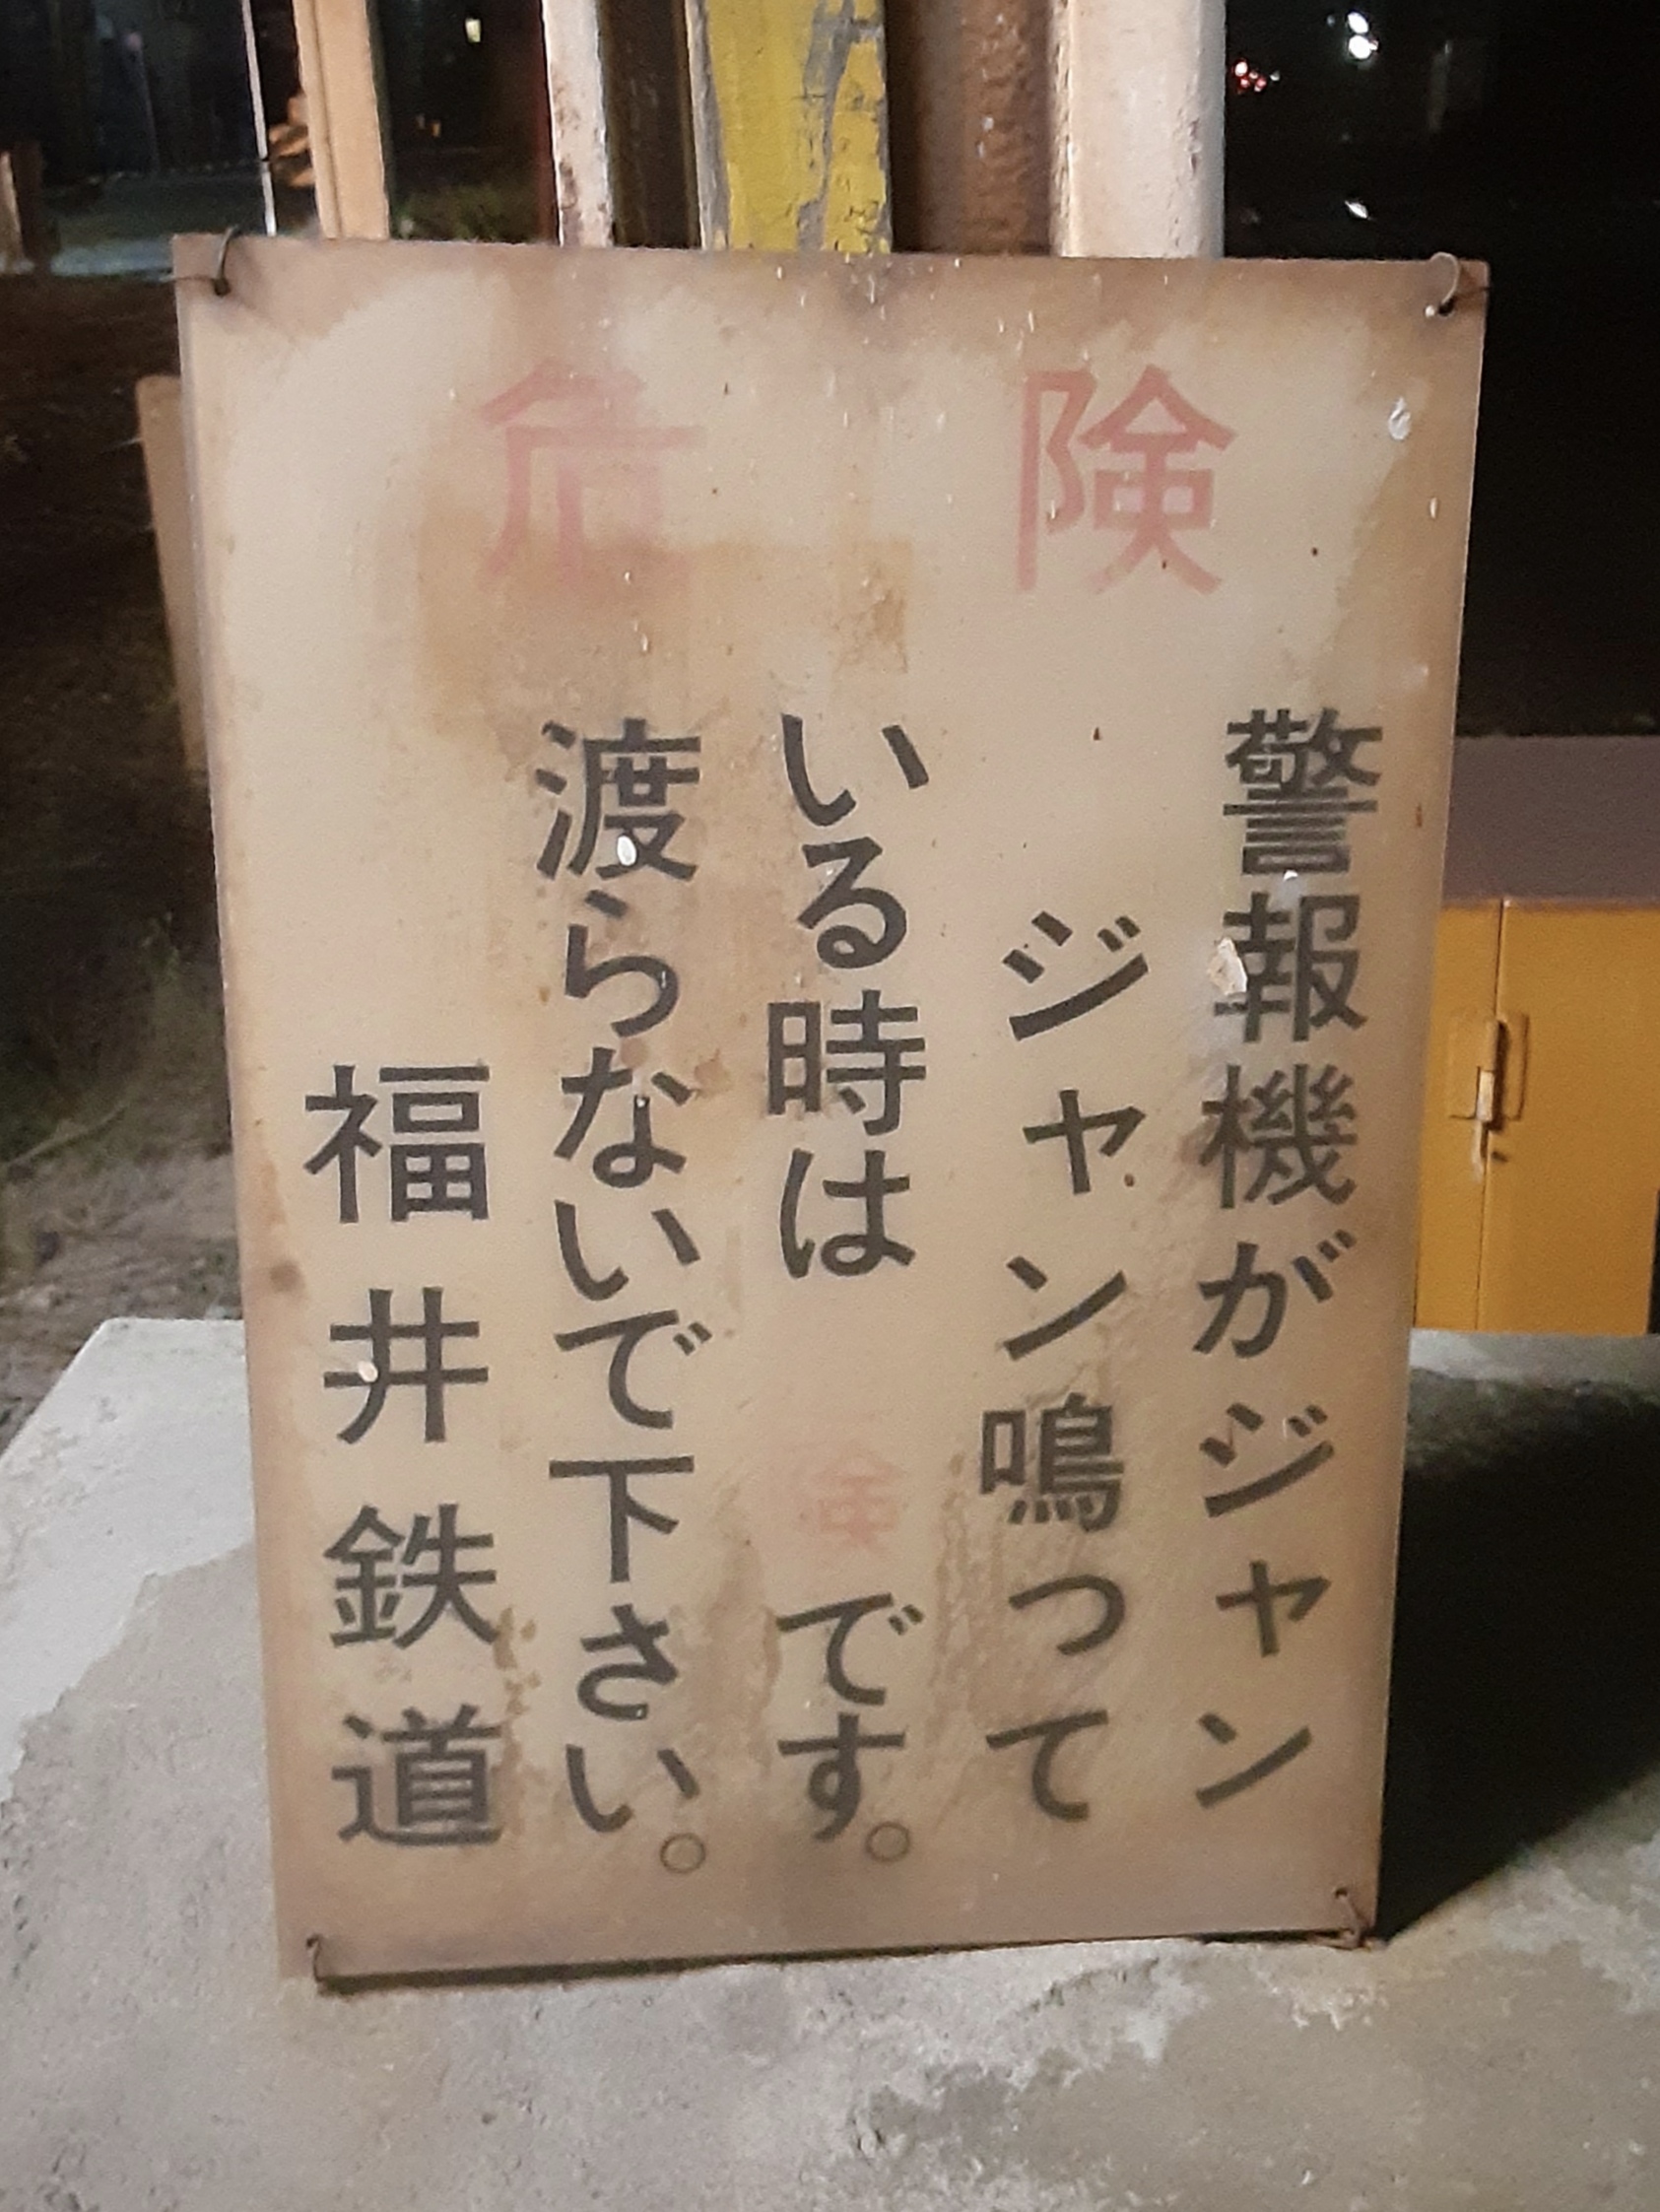 危険
警報機がジャン
ジャン鳴って
いる時は 険です。
渡らないで下さい。
福井鉄道